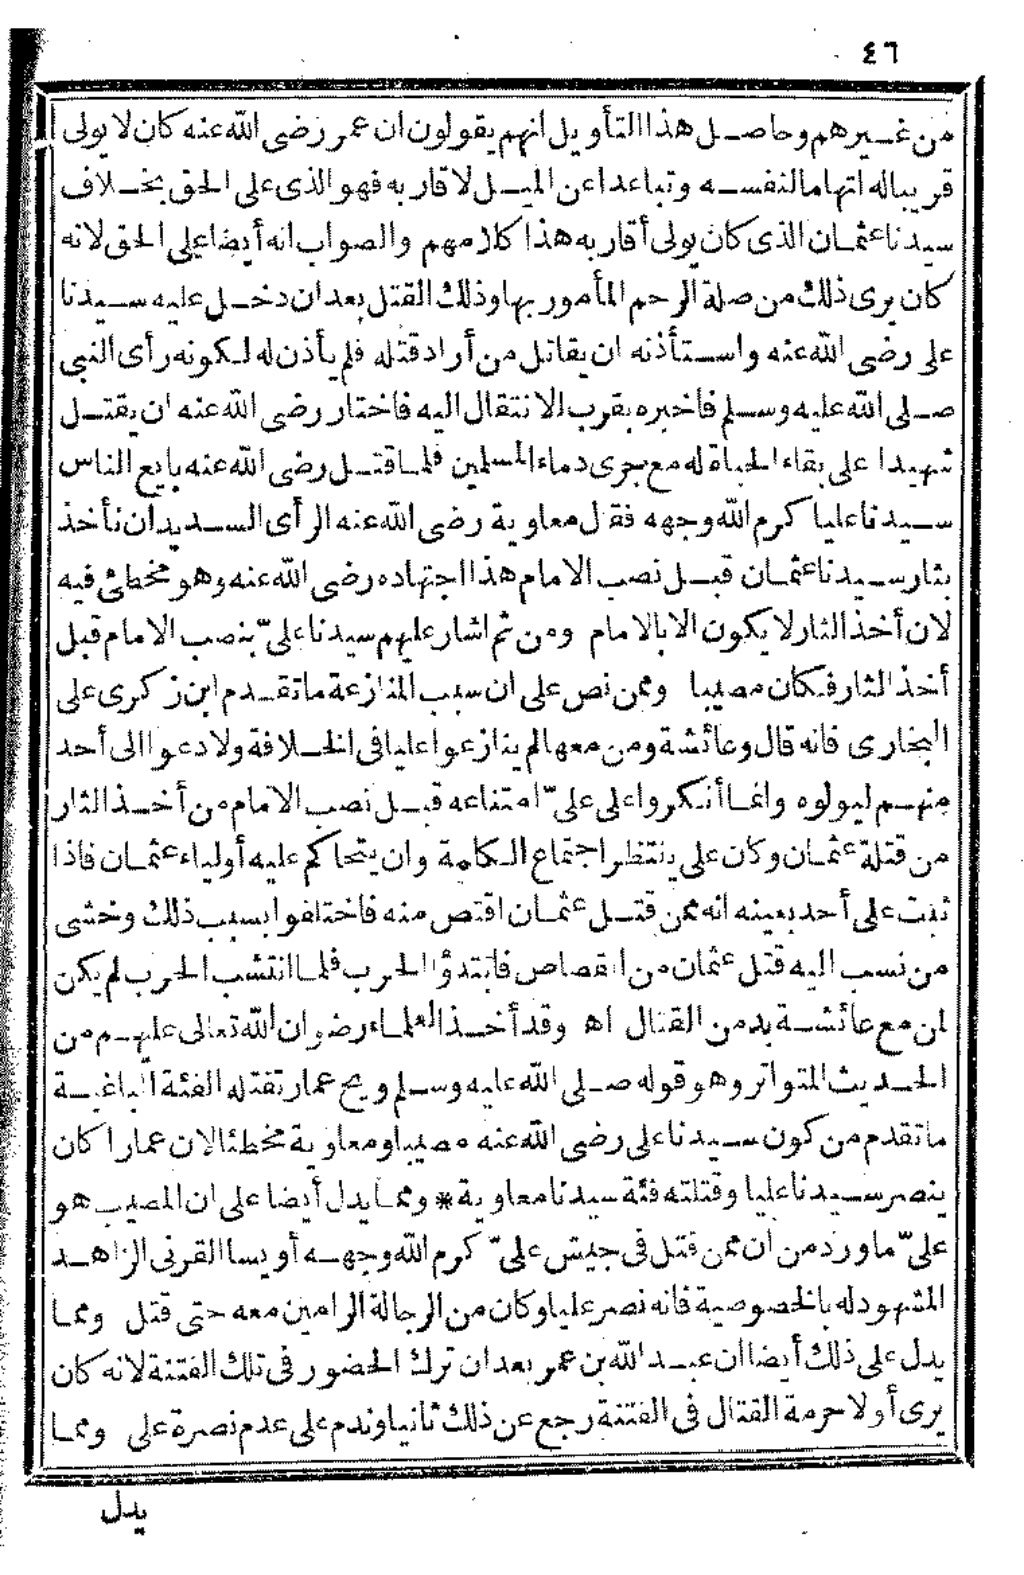 ٤٦
من غيرهم وحاصل هذا التأويل انهم يقولون ان عمر رضى الله عنه كان لا يولى
قريبا له اتهاما لنفسه وتباعدا عن الميل لاقاربه فهو الذى على الحق بخلاف
سيدنا عثمان الذى كان يولى أقاربه هذا كلامهم والصواب انه أيضا على الحق لانه
كان يرى ذلك من صلة الرحم المأمور بها وذلك القتل بعد ان دخل عليه سيدنا
على رضى الله عنه واستأذنه ان يقاتل من أراد قتله فلم يأذن له لكونه رأى النبى
صلى الله عليه وسلم فاخبره بقرب الانتقال اليه فاختار رضى الله عنه ان يقتل
شهيدا على بقاء الحياة له مع جرى دماء المسلمين فلما قتل رضى الله عنه بايع الناس
سيدنا عليا كرم الله وجهه فقال معاوية رضى الله عنه الرأى السديد ان نأخذ
بثار سيدنا عثمان قبل نصب الامام هذا اجتهاده رضى الله عنه وهو مخطئ فيه
لان أخذ الثار لا يكون الا بالامام ومن ثم اشار عليهم سيدنا علىّ بنصب الامام قبل
أخذ الثار فكان مصيبا وممن نص على ان سبب المنازعة ما تقدم ابن زكرى على
البخارى فانه قال وعائشة ومن معها لم ينازعوا عليا فى الخلافة ولا دعوا الى أحد
منهم ليولوه وانما أنكروا على علىّ امتناعه قبل نصب الامام من أخذ الثار
من قتلة عثمان وكان على ينتظر اجتماع الكلمة وان يتحاكم عليه أولياء عثمان فاذا
ثبت على أحد بعينه انه ممن قتل عثمان اقتص منه فاختلفوا بسبب ذلك وخشى
من نسب اليه قتل عثمان من القصاص فابتدؤا الحرب فلما انتشب الحرب لم يكن
لمن مع عائشة بد من القتال اه وقد أخذ العلماء رضوان الله تعالى عليهم من
الحديث المتواتر وهو قوله صلى الله عليه وسلم ويح عمار تقتله الفئة الباغية
ما تقدم من كون سيدنا على رضى الله عنه مصيبا ومعاوية مخطئا لان عمارا كان
ينصر سيدنا عليا وقتلته فئة سيدنا معاوية * ومما يدل أيضا على ان المصيب هو
علىّ ما ورد من ان ممن قتل فى جيش علىّ كرم الله وجهه أويسا القرنى الزاهد
المشهود له بالخصوصية فانه نصر عليا وكان من الرجالة الرامين معه حتى قتل ومما
يدل على ذلك أيضا ان عبد الله بن عمر بعد ان ترك الحضور فى تلك الفتنة لانه كان
يرى أولا حرمة القتال فى الفتنة رجع عن ذلك ثانيا وندم على عدم نصرة على ومما
يدل